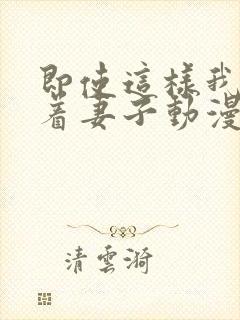 即使這樣我
著妻子動漫
清雲漪